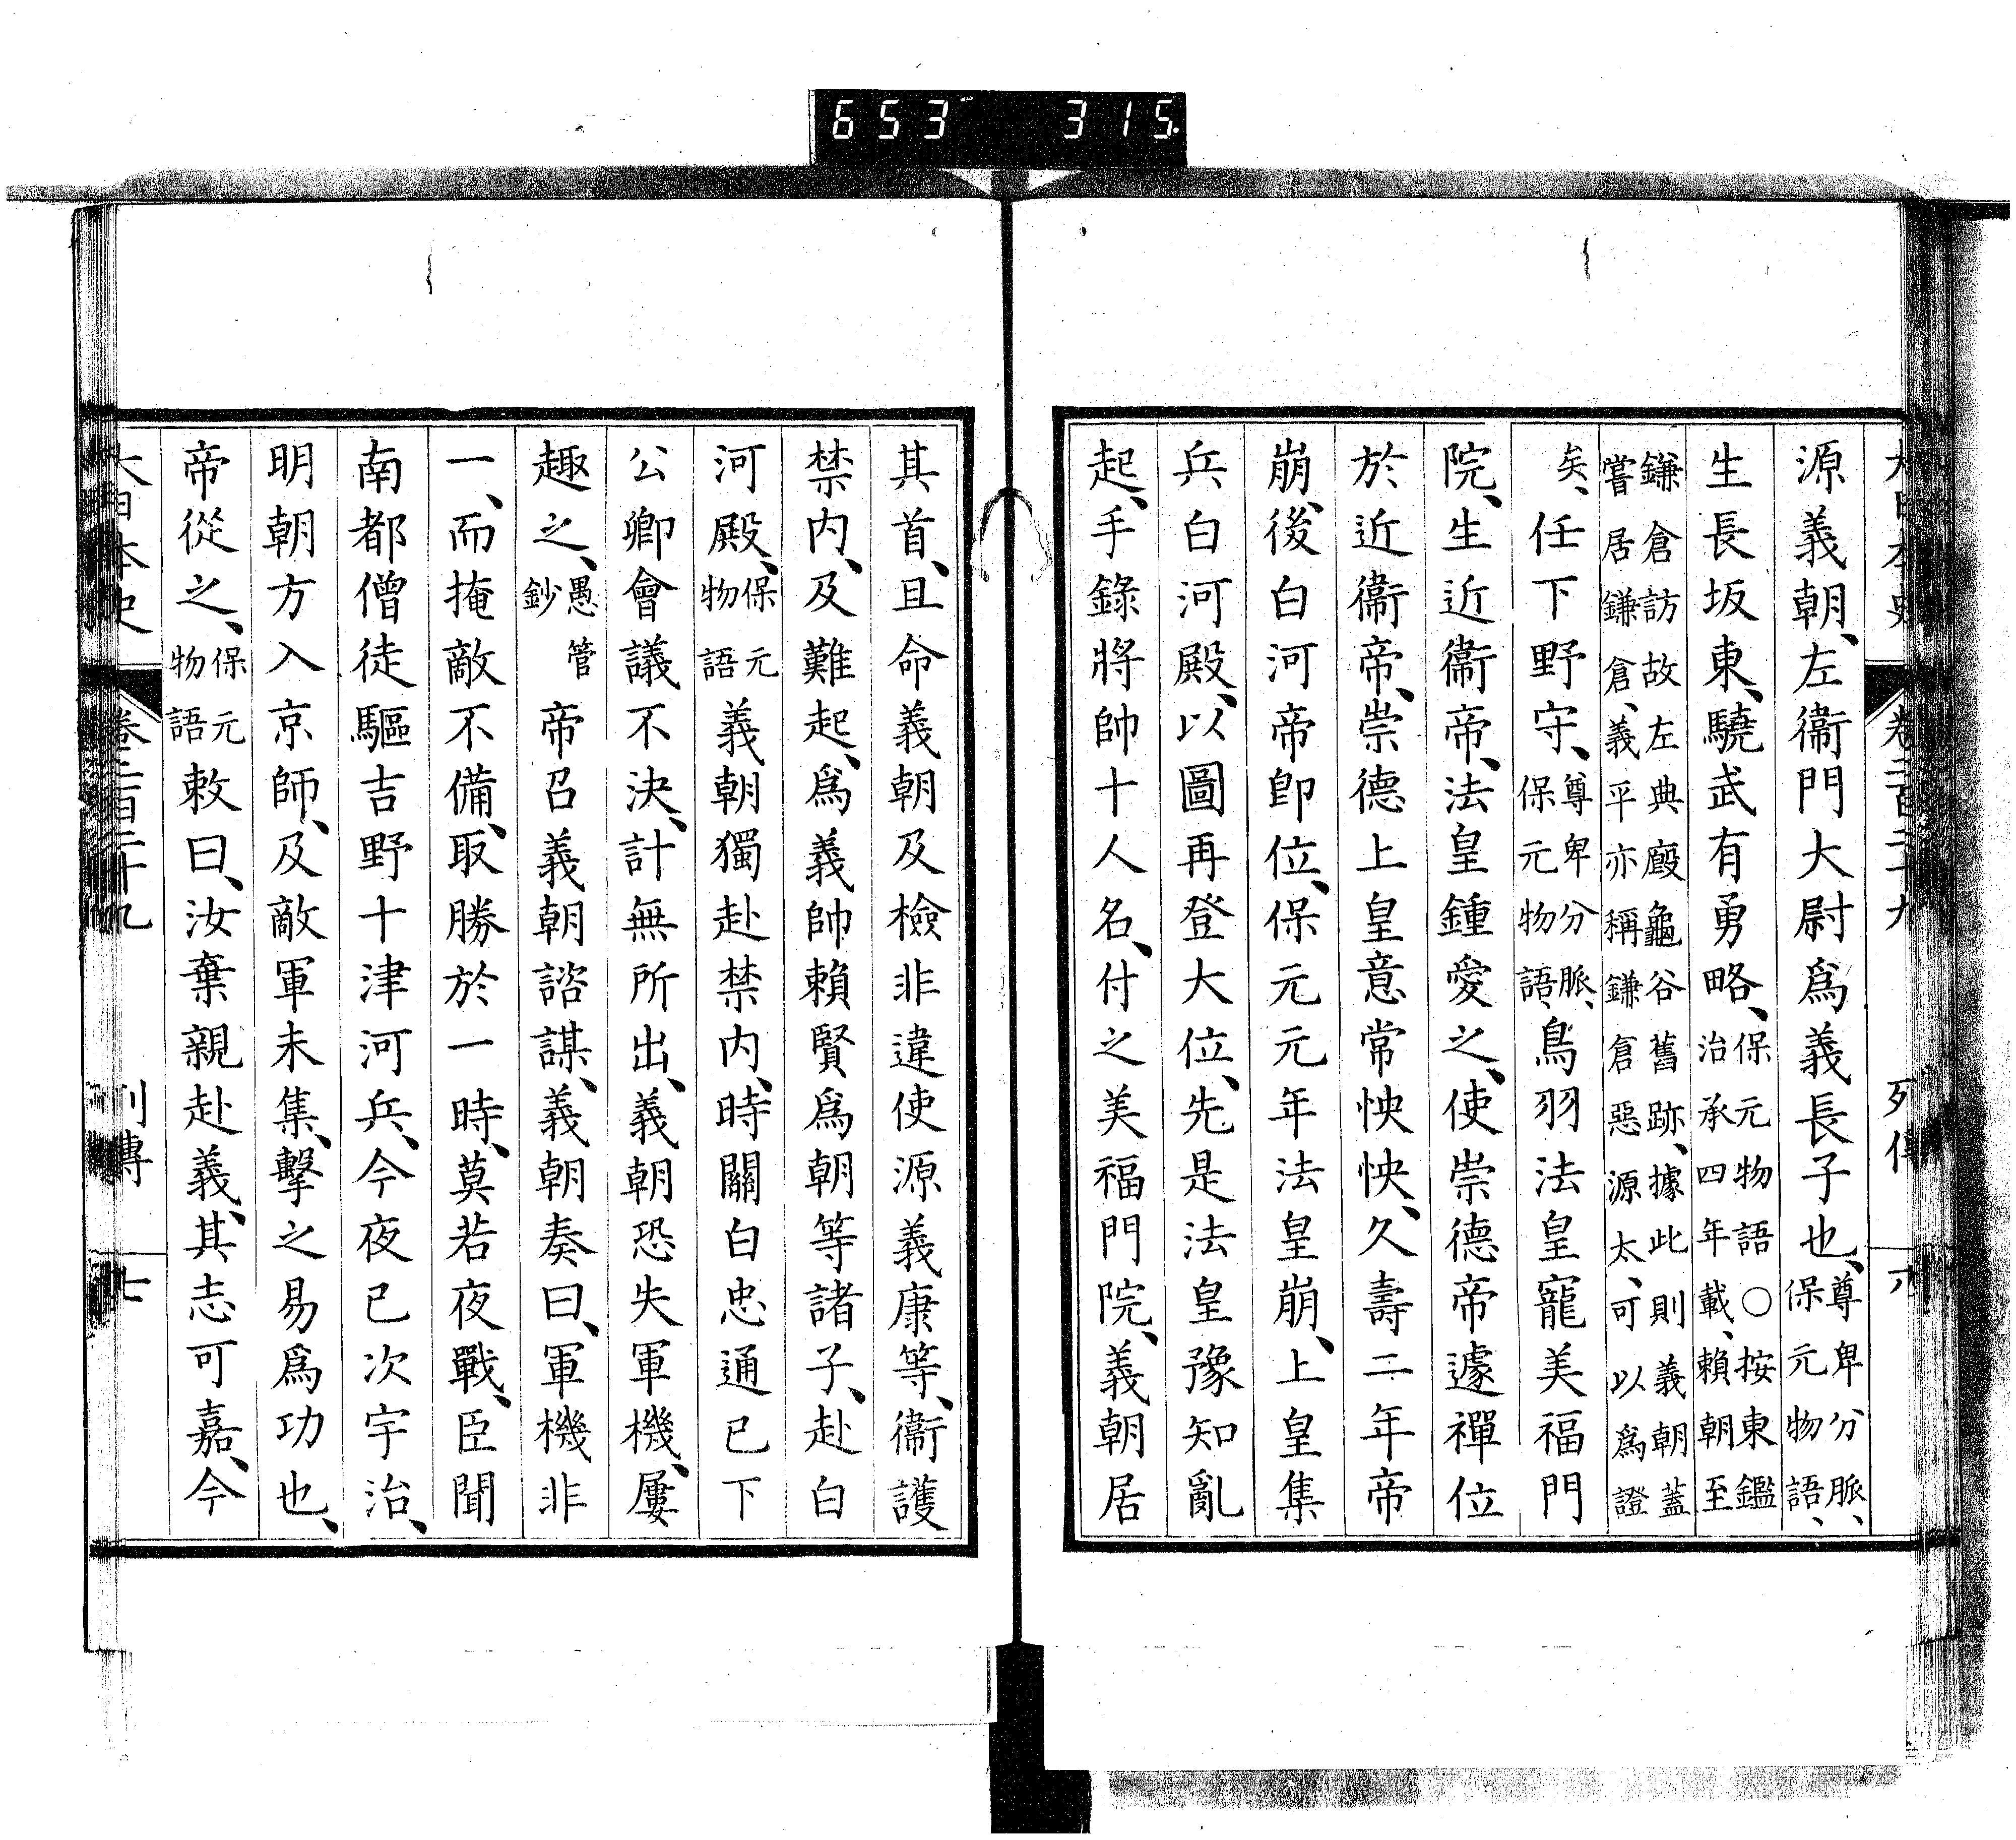 653 315.
大日本史 卷二百二十九 列傳 六
源義朝、左衞門大尉爲義長子也、尊卑分脈、保元物語、
生長坂東、驍武有勇略、保元物語○按東鑑治承四年載、賴朝至
鎌倉訪故左典廐龜谷舊跡、據此則義朝蓋嘗居鎌倉、義平亦稱鎌倉惡源太、可以爲證
矣、任下野守、尊卑分脈、保元物語、鳥羽法皇寵美福門
院、生近衞帝、法皇鍾愛之、使崇德帝遽禪位
於近衞帝、崇德上皇意常怏怏、久壽二年帝
崩、後白河帝卽位、保元元年法皇崩、上皇集
兵白河殿、以圖再登大位、先是法皇豫知亂
起、手錄將帥十人名、付之美福門院、義朝居
其首、且命義朝及檢非違使源義康等、衞護
禁內、及難起、爲義帥賴賢爲朝等諸子、赴白
河殿、保元物語義朝獨赴禁內、時關白忠通已下
公卿會議不決、計無所出、義朝恐失軍機、屢
趣之、愚管鈔帝召義朝諮謀、義朝奏曰、軍機非
一、而掩敵不備、取勝於一時、莫若夜戰、臣聞
南都僧徒驅吉野十津河兵、今夜已次宇治、
明朝方入京師、及敵軍未集、擊之易爲功也、
帝從之、保元物語敕曰、汝棄親赴義、其志可嘉、今
大日本史 卷二百二十九 列傳 七